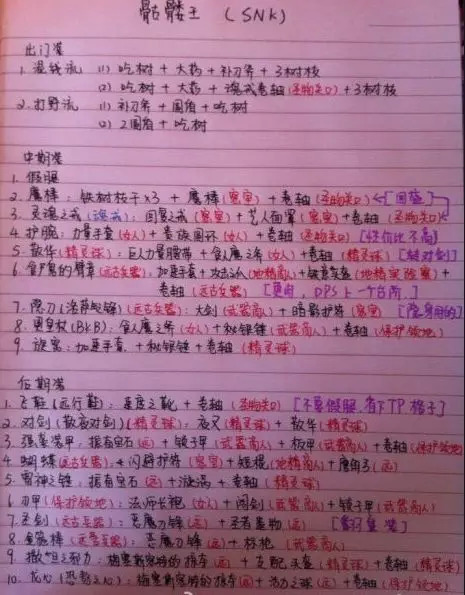 骷髅王 (SNK)
出门装
1. 混线流 (1) 吃树 + 大药 + 补刀斧 + 3树枝
(2) 吃树 + 大药 + 魂戒卷轴(圣物关口) + 3树枝
2. 打野流 (1) 补刀斧 + 圆盾 + 吃树
(2) 2圆盾 + 吃树
中期装
1. 假腿
2. 魔棒:铁树枝干x3 + 魔棒(密室) + 卷轴(圣物关口) ←[回蓝]
3. 灵魂之戒(魂戒):回复之戒(密室) + 艺人面罩(密室) + 卷轴(圣物关口)
4. 护腕:力量手套(女人) + 贵族圆环(女人) + 卷轴(圣物关口) [性价比不高]
5. 散华(精灵球):巨人力量腰带 + 食人魔之斧(女人) + 卷轴(精灵球) [转对剑]
6. 食尸鬼的臂章(远古兵器):加速手套 + 攻击之(地精商人) + 铁意头盔(地精实验室) +
卷轴(远古兵器) [更肉,DPS上一个台阶。]
7. 隐刀(洛萨之锋)(远古兵器):大剑(武器商人) + 暗影护符(密室) [隐身用的]
8. 黑皇杖(BKB):食人魔之斧(女人) + 秘银锤(武器商人) + 卷轴(保护领地)
9. 漩涡:加速手套 + 秘银锤 + 卷轴(精灵球)
后期装
1. 飞鞋(远行鞋):速度之靴 + 卷轴(圣物关口) [不要假腿,省下TP格子]
2. 对剑(散夜对剑)(精灵球):夜叉(精灵球) + 散华(精灵球)
3. 强袭装甲:振奋宝石(远) + 锁子甲(武器商人) + 板甲(武器商人) + 卷轴(保护领地)
4. 蝴蝶(远古兵器):闪避护符(密室) + 短棍(地精商人) + 鹰角弓(远)
5. 雷神之锤:振奋宝石(远) + 漩涡 + 卷轴(精灵球)
6. 刃甲(保护领地):法师长袍(女人) + 阔剑(武器商人) + 锁子甲(武器商人)
7. 圣剑(远古兵器):恶魔刀锋(远) + 圣者遗物(远) [翻身装]
8. 金箍棒(远古兵器):恶魔刀锋(远) + 标枪(武器商人)
9. 撒旦之邪力:梅赛斯客特的掠夺(远) + 支配头盔(精灵球) + 卷轴(精灵球)
10. 龙心(恐鳌之心):梅赛斯客特的掠夺(远) + 活力之球(远) + 卷轴(保护领地)